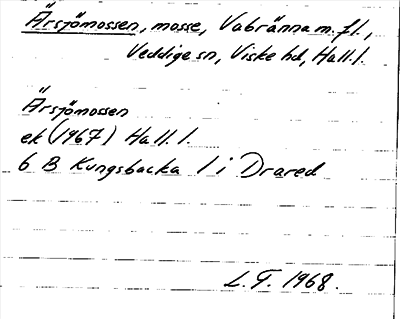 Ärsjömossen, mosse, Vabränna m. fl.,
Veddige sn, Viske hd, Hall. l.
Ärsjömossen
ek (1967) Hall. l.
6 B Kungsbacka 1 i Drared
L. T. 1968.